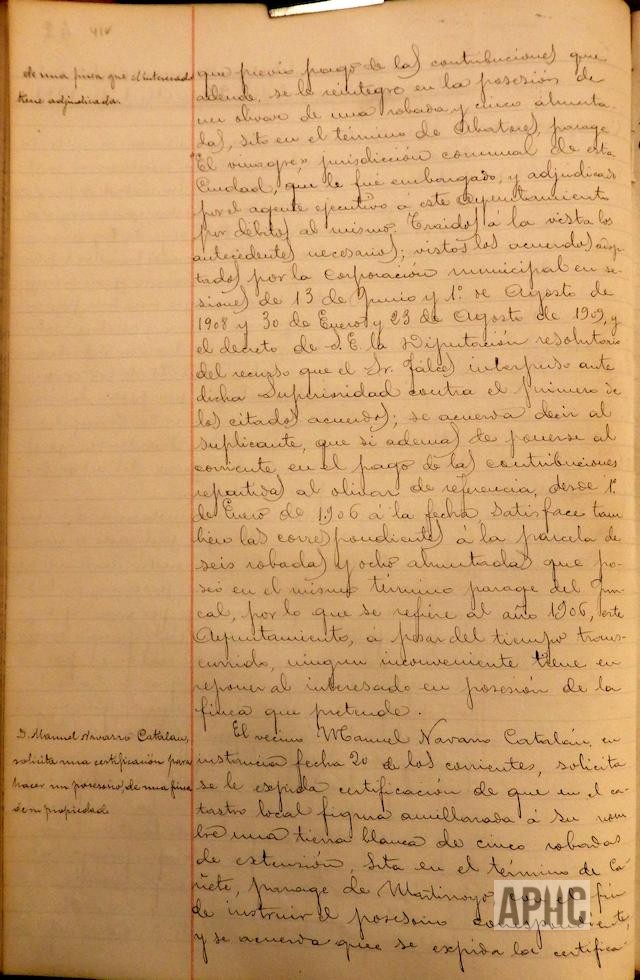 de una finca que el interesado
tiene adjudicada.
que previo pago de las contribuciones que
adeude, se le reintegre en la posesión de
un olivar de una robada y cinco almuta-
das, sito en el término de Albatores, parage
"El vinagre" jurisdicción comunal de esta
Ciudad, que le fué embargado, y adjudicado
por el agente ejecutivo a este Ayuntamiento
por débitos al mismo. Traidos á la vista los
antecedentes necesarios; vistos los acuerdos adop-
tados por la corporación municipal en se-
siones de 13 de Junio y 1º de Agosto de
1908 y 30 de Enero y 23 de Agosto de 1909, y
el decreto de S.E. la Diputación resolutorio
del recurso que el Sr. Jálces interpuso ante
dicha Superioridad contra el primero de
los citados acuerdos; se acuerda decir al
suplicante, que si además de ponerse al
corriente en el pago de las contribuciones
repartidas al olivar de referencia, desde 1º
de Enero de 1906 á la fecha satisface tam-
bien las correspondientes á la parcela de
seis robadas y ocho almutadas que po-
seó en el mismo término parage del
cal, por lo que se refiere al año 1906, este
Ayuntamiento, á pesar del tiempo trans-
currido, ningun inconveniente tiene en
reponer al interesado en posesión de la
finca que pretende.
D. Manuel Navarro Catalan,
solicita una certificación para
hacer un posesorio, de una finca
de su propiedad
El vecino Manuel Navarro Catalán, en
instancia fecha 20 de los corrientes, solicita
se le expida certificación de que en el ca-
tastro local figura amillarada á su nom-
bre una tierra blanca de cinco robadas
de extensión, sita en el término de Ca-
ñete, parage de Martinoyo con el fin
de instruir el posesorio correspondiente,
y se acuerda que se expida la certifica-
APHC